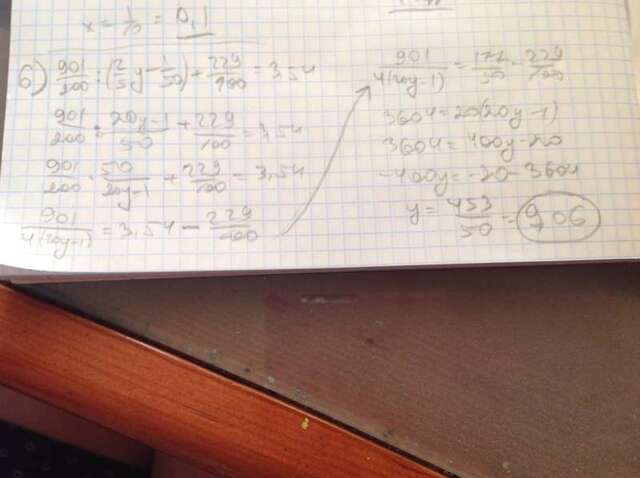 x = 1/10 = 0,1
б) 901/200 : (2/5y - 1/50) + 229/100 = 3,54
901/200 : 20y-1/50 + 229/100 = 3,54
901/200 · 50/20y-1 + 229/100 = 3,54
901/4(20y-1) = 3,54 - 229/100
901/4(20y-1) = 177/50 - 229/100
3604 = 20(20y-1)
3604 = 400y-20
-400y = -20-3604
y = 453/50 = 9,06